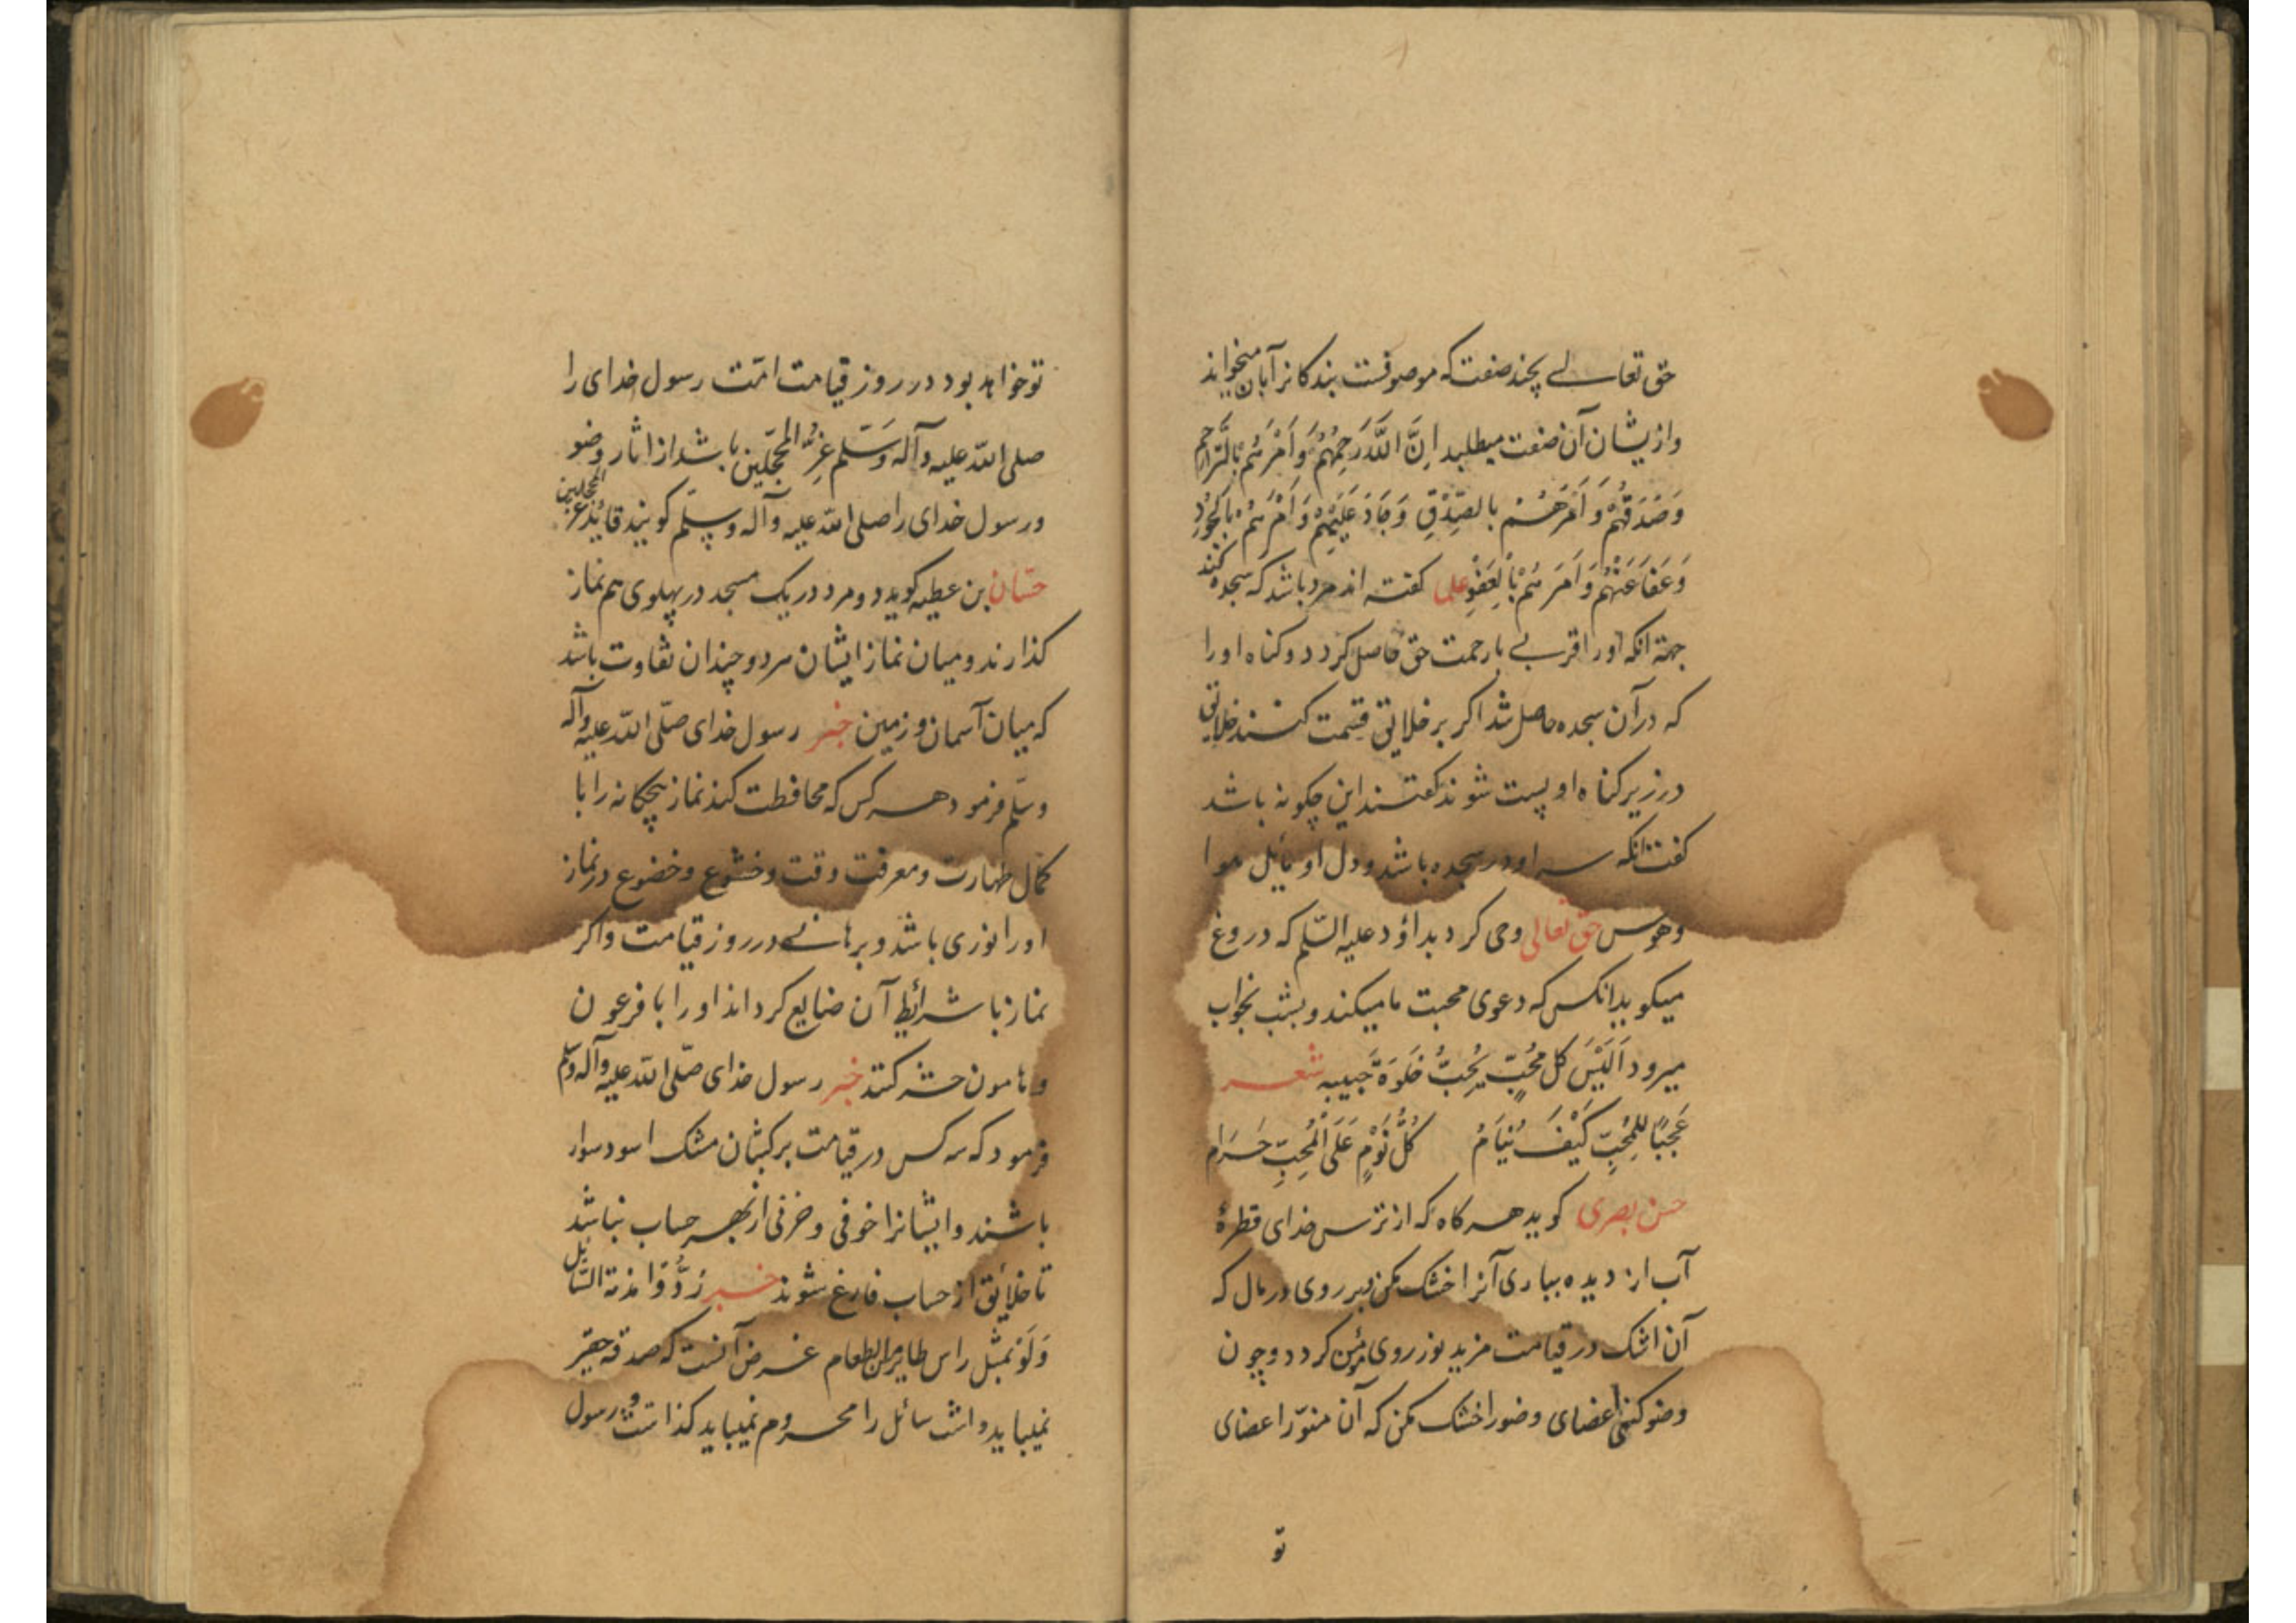 حق تعالے بچند صفت که موصوفست بندکانرا بآن میخواند
وازیشان آن صفت میطلبد اِنَّ اللّٰهَ رَحِمَهُمْ وَاَمَرَهُمْ بِالتَّرَاحُمِ
وَصَدَقَهُمْ وَاَمَرَهُمْ بالصِّدْقِ وَجَادَ عَلَيْهِمْ وَاَمَرَهُمْ بالجُودِ
وَعَفَا عَنْهُمْ وَاَمَرَهُمْ بِالْعَفْوِ علی کفته اند مرد باشد که سجده کند
جهة انکه اورا قربے بارحمت حق حاصل کردد و کناه اورا
که درآن سجده حاصل شد اکر بر خلایق قسمت کنند خلایق
در زیر کناه او پست شوند کفتند این چکونه باشد
کفت انکه سر او در سجده باشد و دل او مائل هوا
وهوس حق تعالی وحی کرد بداؤد علیه السّلم که دروغ
میکوید انکس که دعوی محبت ما میکند و بشب بخواب
میرود اَلَيْسَ كل مُحِبٍّ يُحِبُّ خَلوَةَ حَبيبه شعر
عَجَبًا لِلمُحِبِّ كَيْفَ يَنَامُ كُلُّ نَوْمٍ عَلَى الْمُحِبِّ حَرَام
حسن بصری کوید هر کاه که از ترس خدای قطرهٔ
آب از دیده بباری آنرا خشک مکن بر روی در مال که
آن اشک در قیامت مزید نور روی مؤمن کردد و چون
وضو کنی اعضای وضو را خشک مکن که آن منوّر اعضای
تو
تو خواهد بود در روز قیامت امّت رسول خدای را
صلی اللّه علیه وآله وَسَلّم غِرّ المحجّلین باشد از اثار وضو
ورسول خدای را صلی اللّه علیه وآله وسلّم کویند قائد غر المحجلین
حسّان بن عطیه کوید دو مرد در یک مسجد در پهلوی هم نماز
کذارند و میان نماز ایشان هر دو چندان تفاوت باشد
که میان آسمان و زمین خبر رسول خدای صلّی اللّه علیه وآله
وسلّم فرمود هر کس که محافظت کند نماز پنجکانه را با
کمال طهارت و معرفت وقت و خشوع و خضوع در نماز
او را نوری باشد و برهانے در روز قیامت و اکر
نماز با شرائط آن ضایع کرداند او را با فرعون
و هامون حشر کنند خبر رسول خدای صلّی اللّه علیه وآله وسلم
فرمود که سه کس در قیامت بر کثبان مشک اسود سوار
باشند و ایشانرا خوفی و حزنی از بهر حساب نباشد
تا خلائق از حساب فارغ شوند خبر رُدُّوا مذمة السّائل
وَلَوْ بمثل راس طایر من الطعام غرض آنست که صدقه حقیر
نمیباید داشت سائل را محروم نمیباید کذاشت و رسول